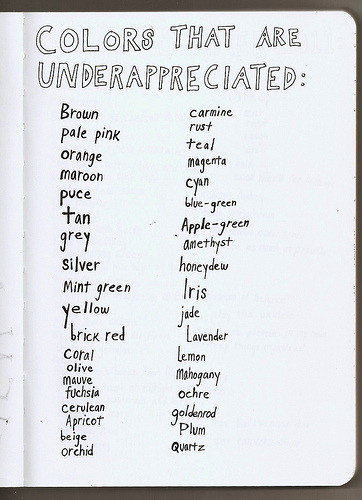 COLORS THAT ARE
UNDERAPPRECIATED:
Brown
pale pink
orange
maroon
puce
tan
grey
silver
Mint green
yellow
brick red
coral
olive
mauve
fuchsia
cerulean
Apricot
beige
orchid
carmine
rust
teal
magenta
cyan
blue-green
Apple-green
amethyst
honeydew
Iris
jade
Lavender
Lemon
Mahogany
ochre
goldenrod
Plum
Quartz